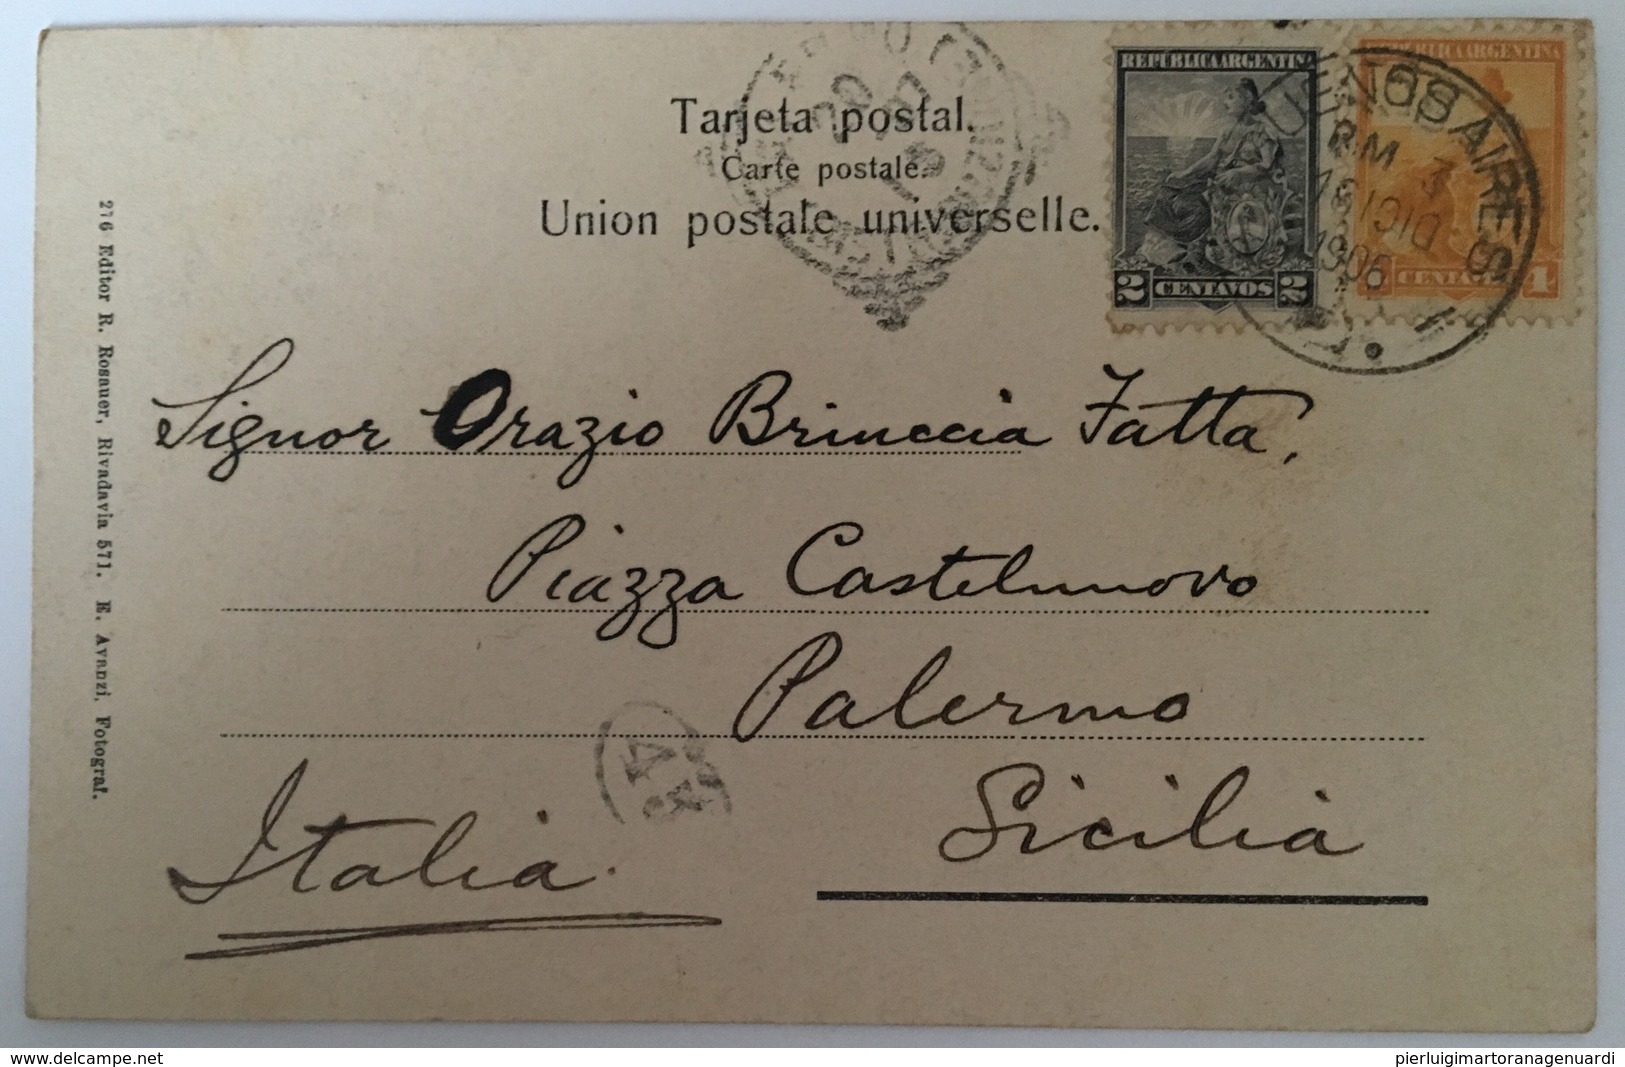 Tarjeta postal.
Carte postale.
Union postale universelle.
REPUBLICA ARGENTINA
2 CENTAVOS 2
REPUBLICA ARGENTINA
CENTAVO 1
BUENOS AIRES
3
1906
276 Editor R. Rosauer, Rivadavia 571. E. Avanzi, Fotograf.
Signor Orazio Brinccia Fatta,
Piazza Castelnuovo
Palermo
Sicilia
Italia.
delcampe.net
pierluigimartoranagenuardi